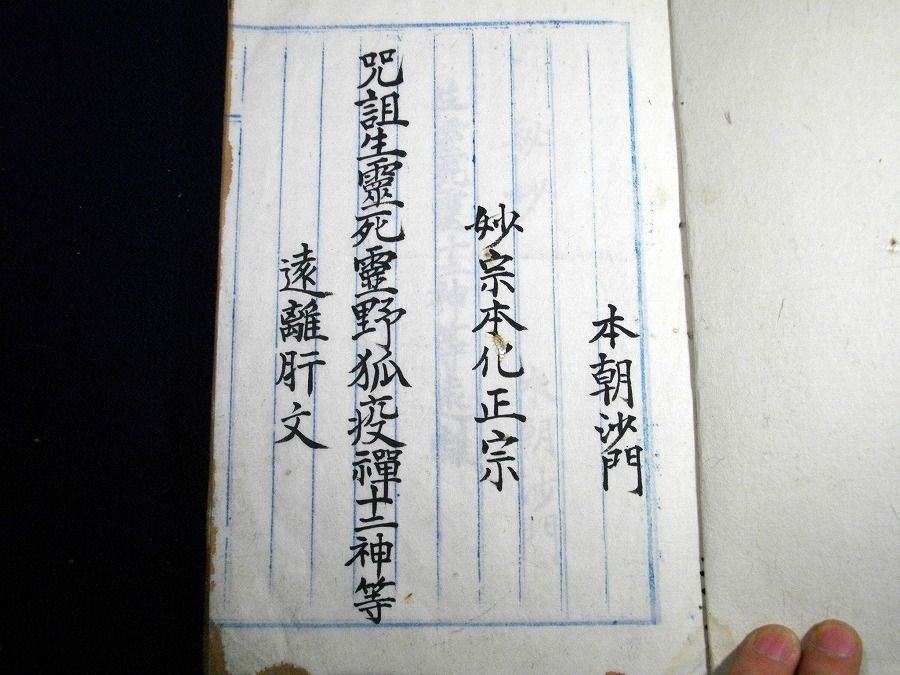 本朝沙門
妙宗本化正宗
咒詛生靈死靈野狐疫禪十二神等
遠離肝文